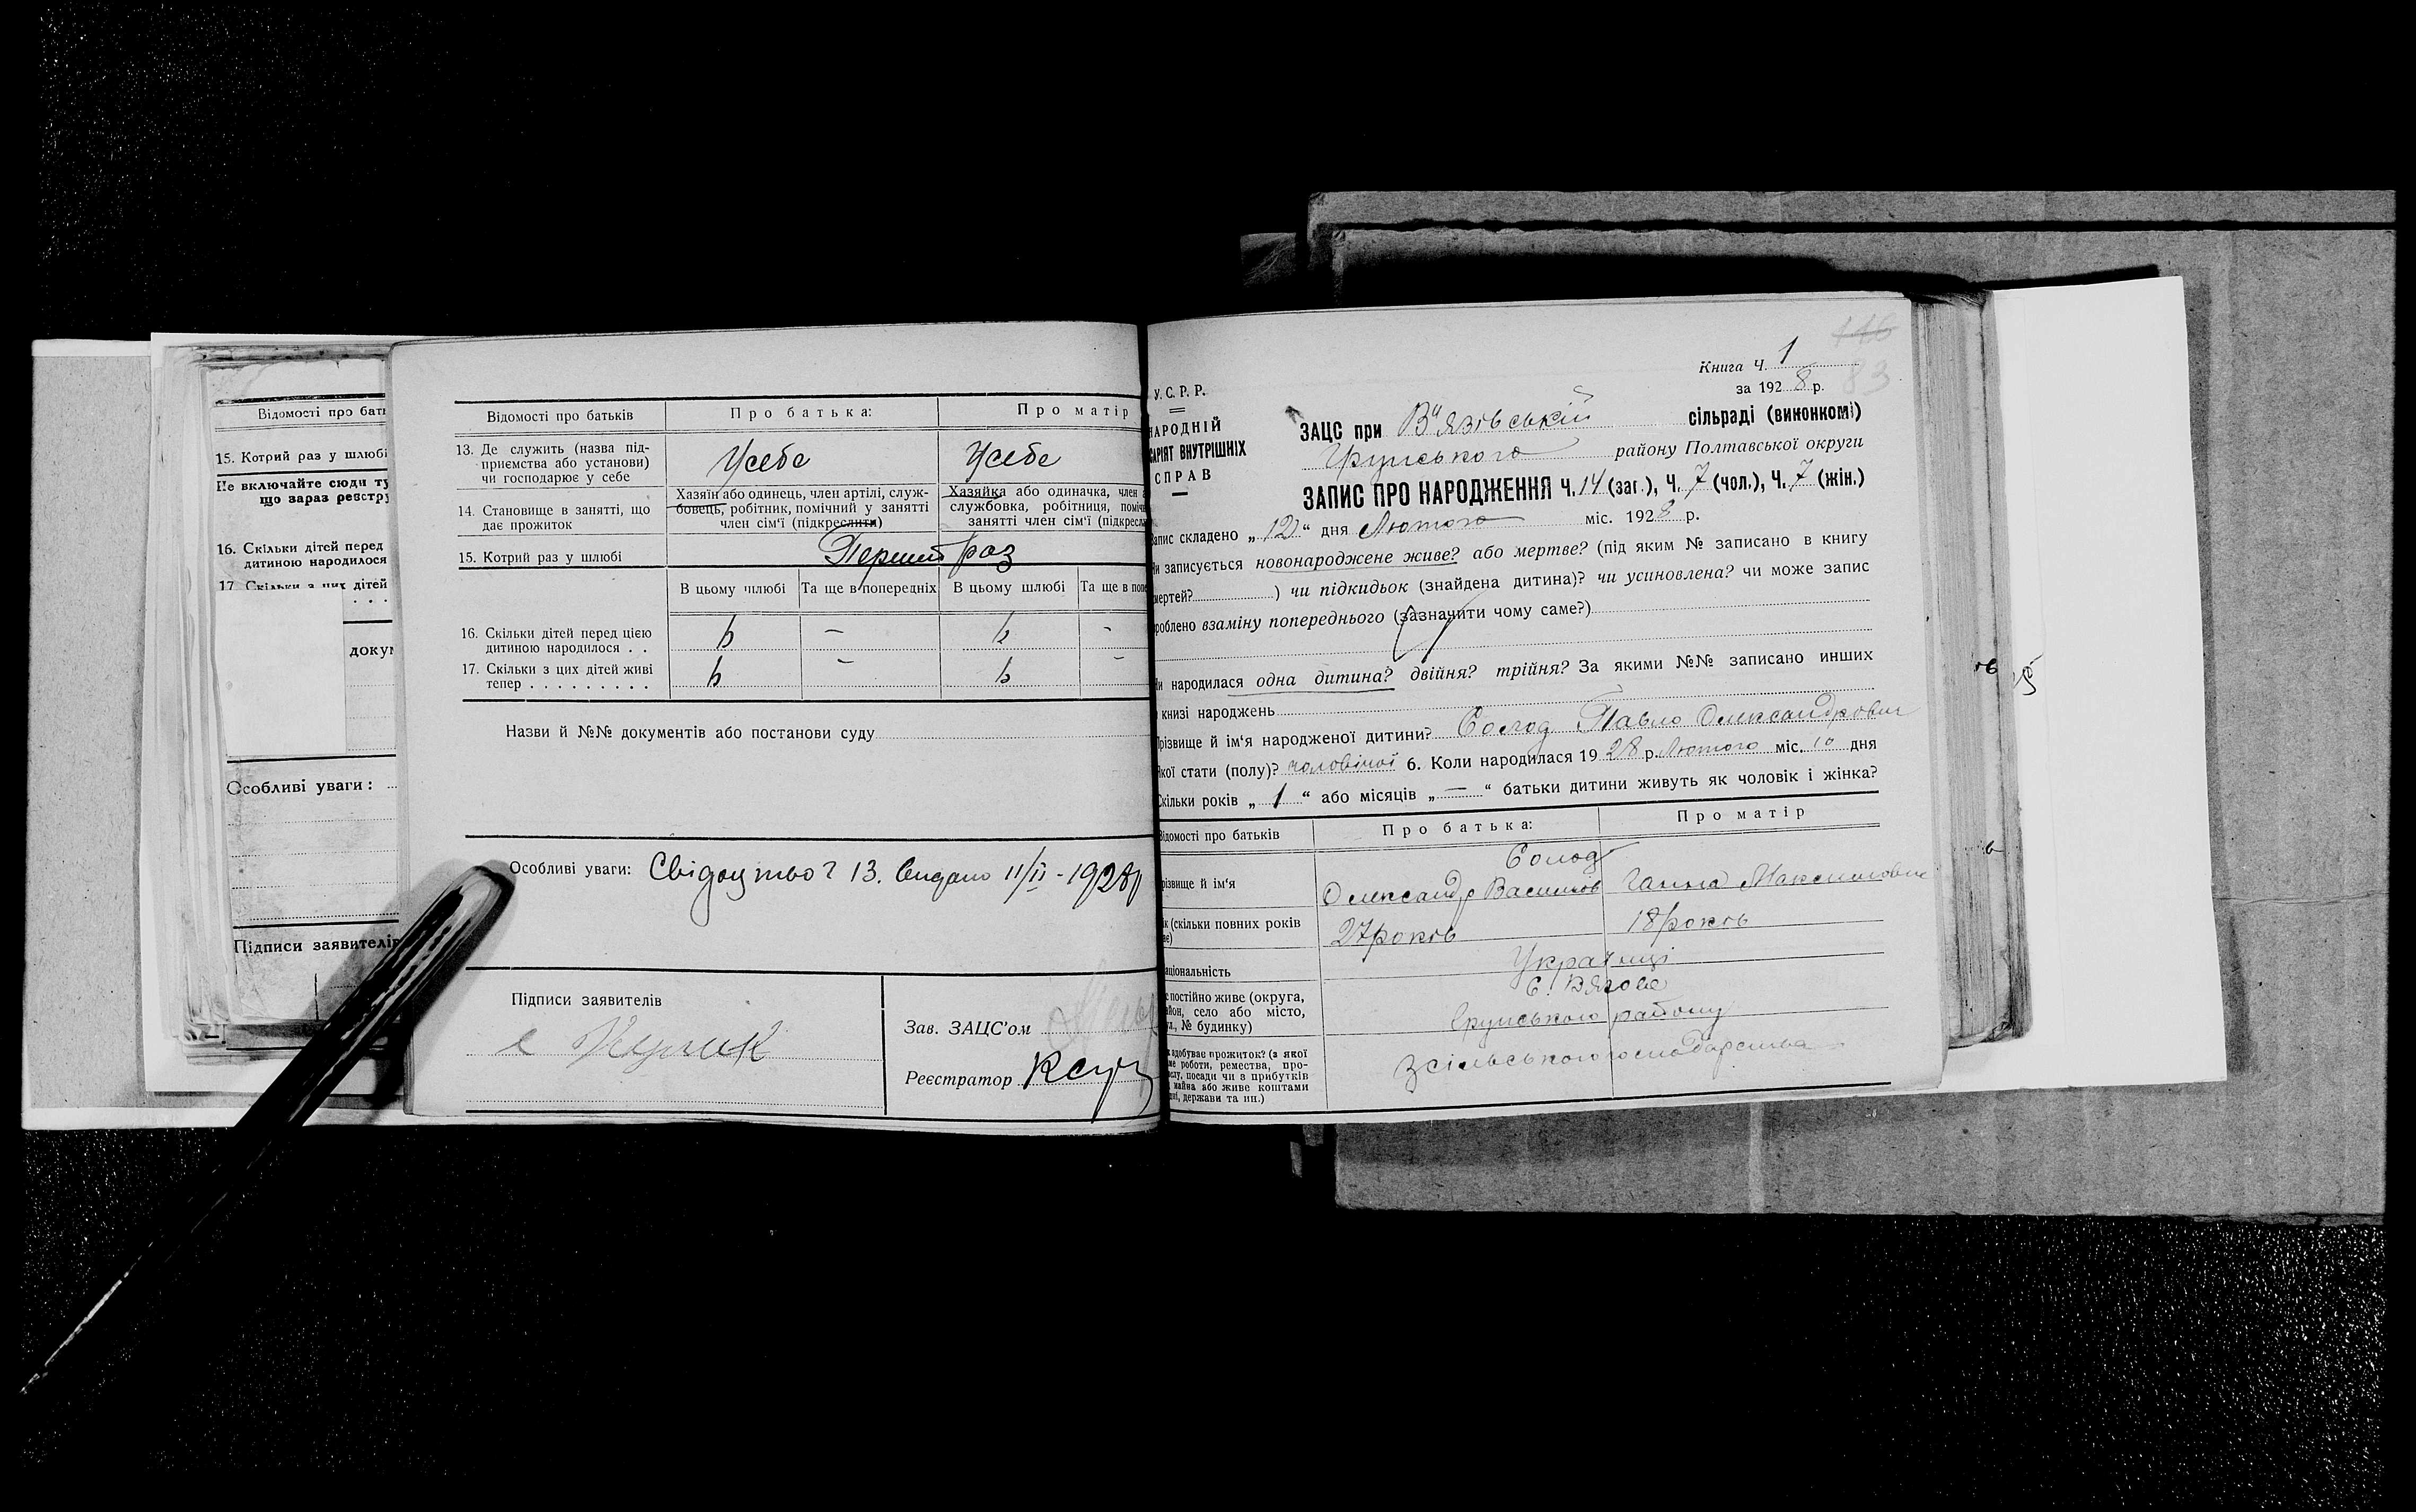 Відомості про бать
15. Котрий раз у шлюбі
Не включайте сюди ту
що зараз реєстру
16. Скільки дітей перед
дитиною народилося
17. Скільки з цих дітей
. . .
докум
Особливі уваги:
Підписи заявителів
Відомості про батьків
Про батька:
Про матір
13. Де служить (назва під-
приємства або установи)
чи господарює у себе
Усебе
Усебе
14. Становище в занятті, що
дає прожиток
Хазяїн або одинець, член артілі, служ-
бовець, робітник, помічний у занятті
член сім'ї (підкреслити)
Хазяйка або одиначка, член
службовка, робітниця, поміч
занятті член сім'ї (підкресл
15. Котрий раз у шлюбі
Перший раз
В цьому шлюбі
Та ще в попередніх
В цьому шлюбі
Та ще в попе
16. Скільки дітей перед цією
дитиною народилося . .
—
-
17. Скільки з цих дітей живі
тепер . . . . . . . . .
—
—
Назви й №№ документів або постанови суду
Особливі уваги: Свідоцтво 13. Видано 11/II - 1928р
Підписи заявителів
Зав. ЗАЦС'ом
Реєстратор
146
83
Книга Ч. 1
за 1928 р.
У. С. Р. Р.
НАРОДНІЙ
САРІЯТ ВНУТРІШНІХ
СПРАВ
ЗАЦС при В'язівській сільраді (виконкомі)
Грунського району Полтавської округи
ЗАПИС ПРО НАРОДЖЕННЯ Ч. 14 (заг.), Ч. 7 (чол.), Ч. 7 (жін.)
Запис складено „12“ дня Лютого міс. 1928 р.
Чи записується новонароджене живе? або мертве? (під яким № записано в книгу
мертей? ) чи підкидьок (знайдена дитина)? чи усиновлена? чи може запис
роблено взаміну попереднього (зазначити чому саме?)
Чи народилася одна дитина? двійня? трійня? За якими №№ записано инших
книзі народжень
Прізвище й ім'я народженої дитини? Солод Павло Олександрович
Якої стати (полу)? чоловічої 6. Коли народилася 1928 р. Лютого міс. 10 дня
Скільки років „1“ або місяців „—“ батьки дитини живуть як чоловік і жінка?
Відомості про батьків
Про батька:
Про матір
Солод
різвище й ім'я
Олександр Васильов
Ганна Максимовна
ік (скільки повних років
ає)
27 років
18 років
аціональність
Українці
е постійно живе (округа,
айон, село або місто,
ул., № будинку)
с. Вязове
Грунського району
к здобуває прожиток? (з якої
ме роботи, ремества, про-
ислу, посади чи з прибутків
майна або живе коштами
дні, держави та ин.)
З сільського господарства